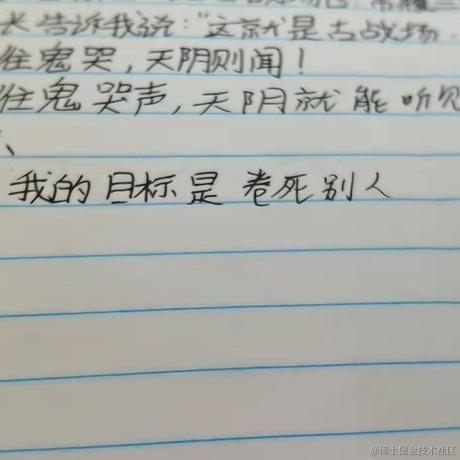 长告诉我说："这就是古战场.
往鬼哭，天阴则闻！
往鬼哭声，天阴就能听见
我的目标是卷死别人
@稀土掘金技术社区